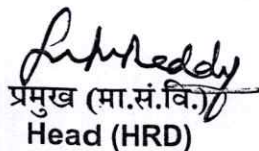 प्रमुख (मा.सं.वि.)
Head (HRD)